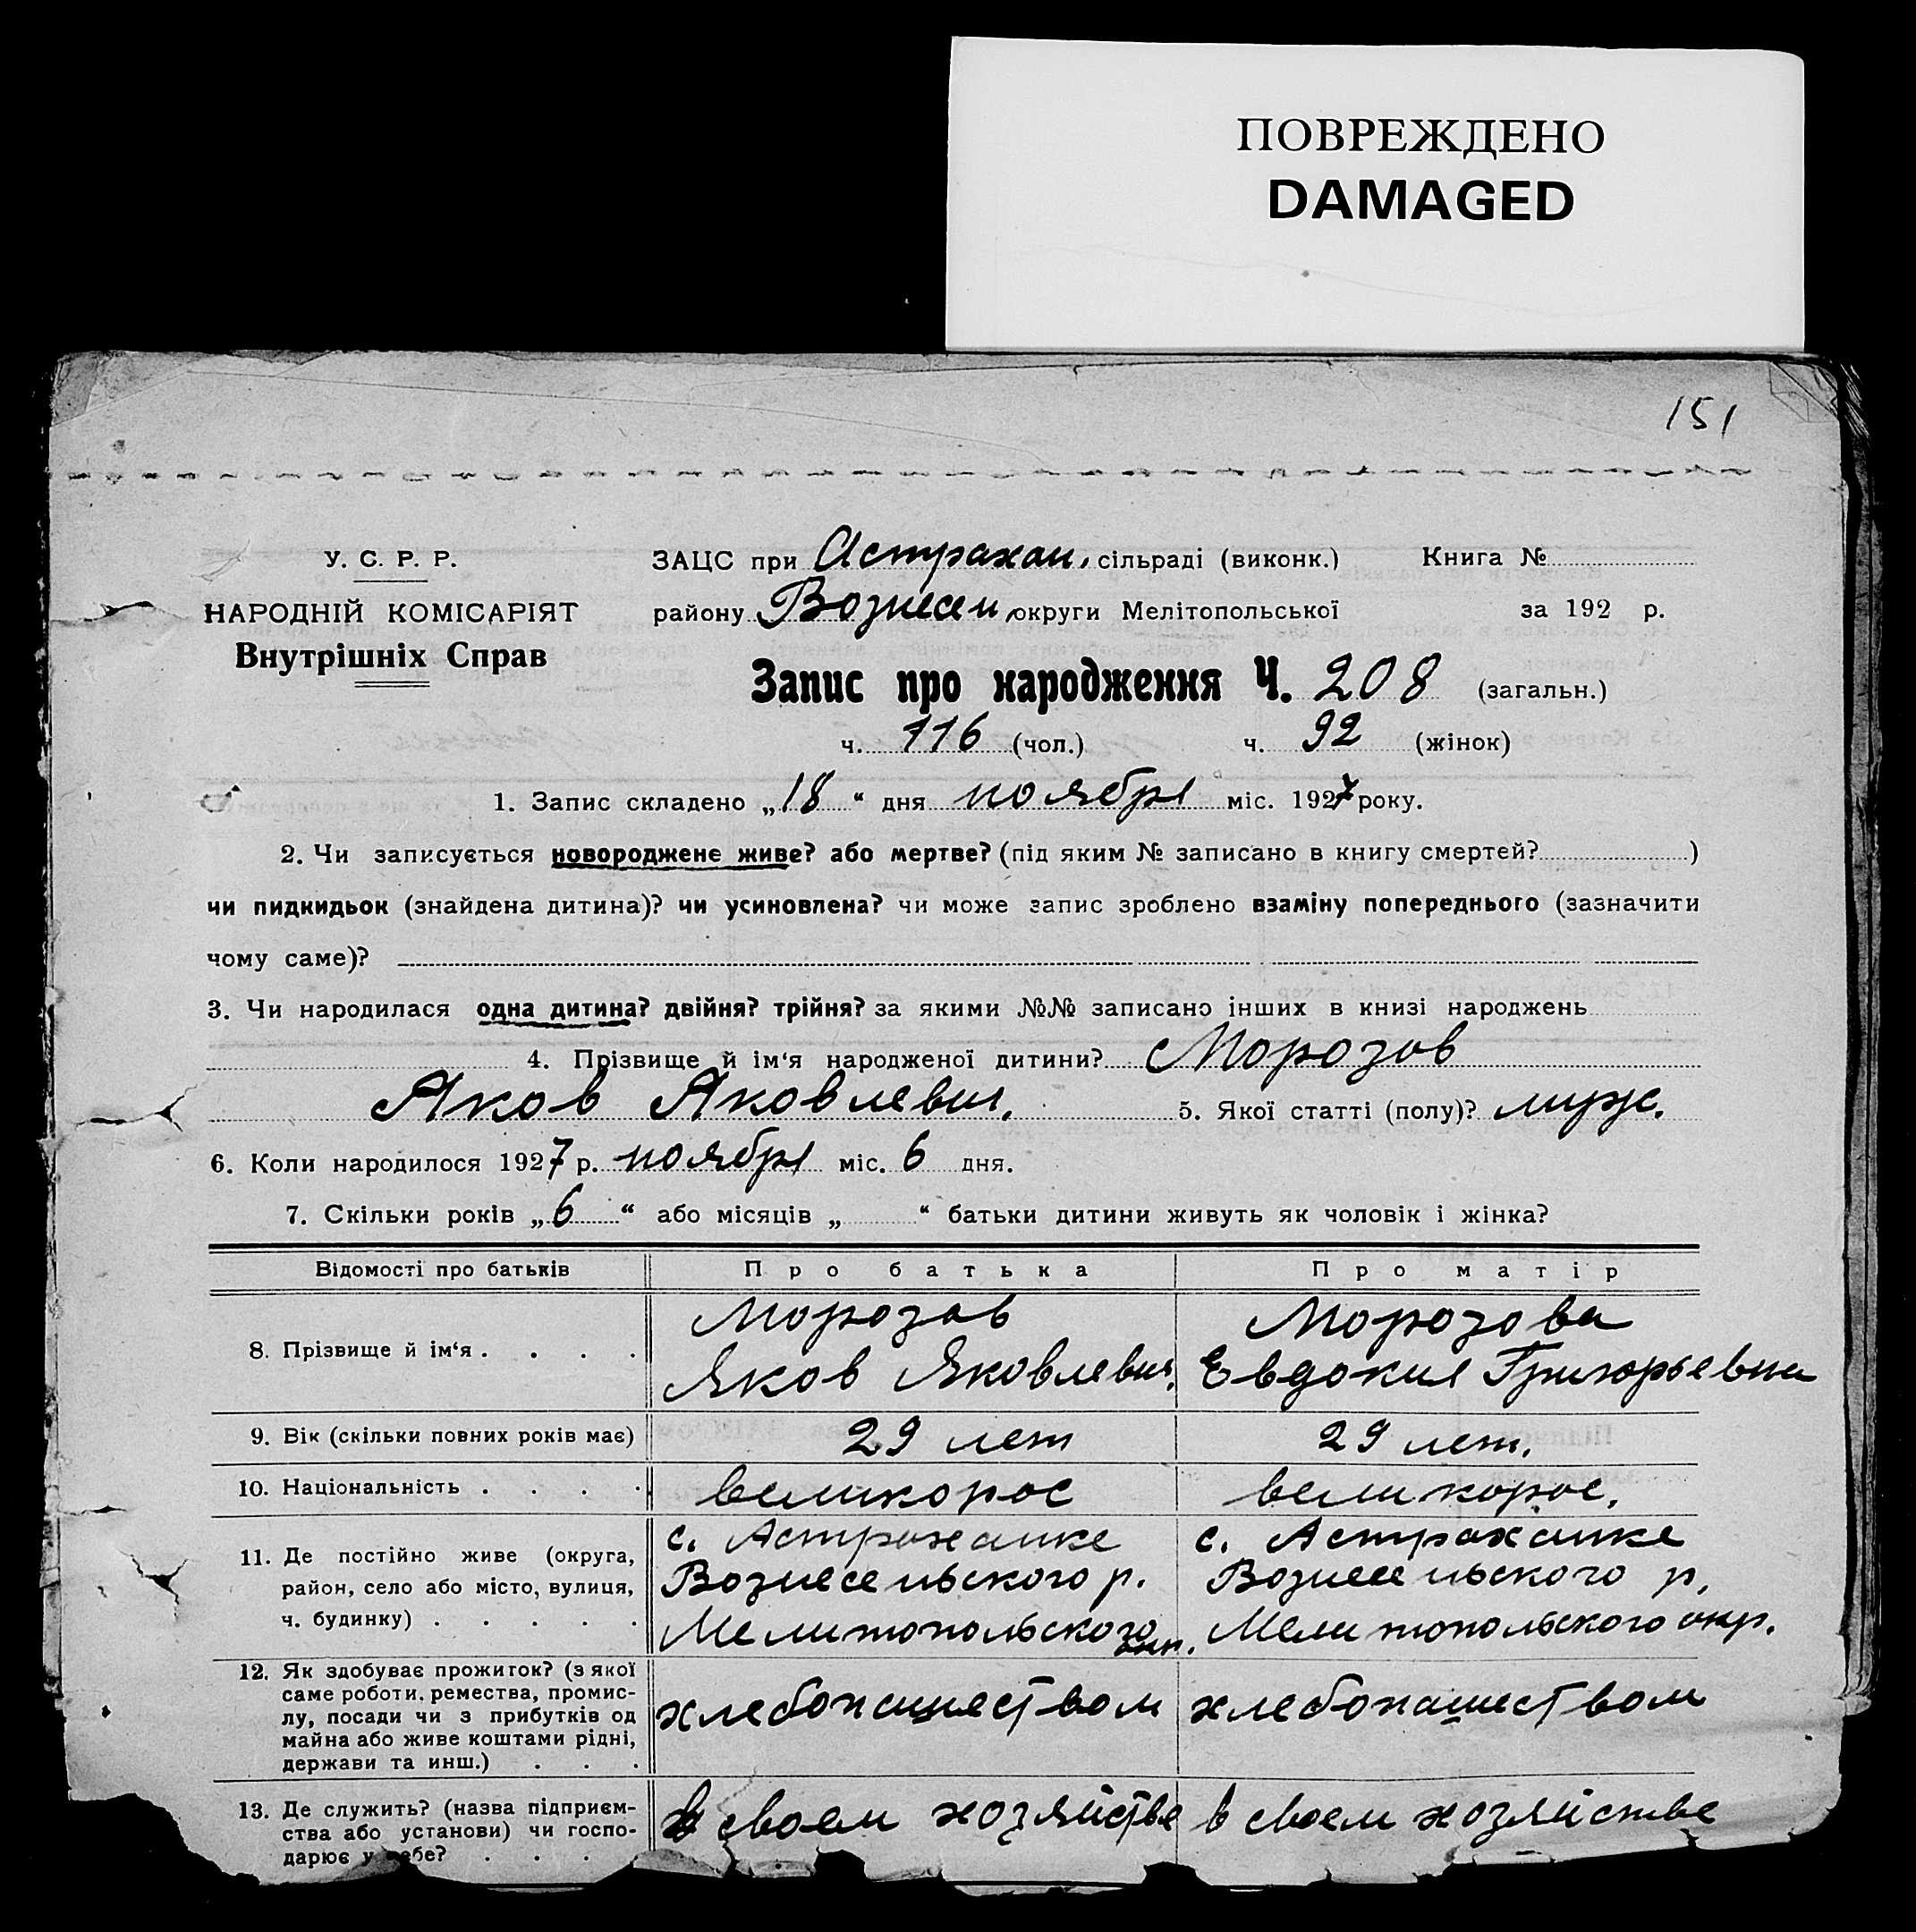 ПОВРЕЖДЕНО
DAMAGED
151
У. С. Р. Р.
НАРОДНІЙ КОМІСАРІЯТ
Внутрішніх Справ
ЗАЦС при Астрахан. сільраді (виконк.) Книга №
району Вознесен. округи Мелітопольської за 192 р.
Запис про народження Ч. 208 (загальн.)
ч. 116 (чол.) ч. 92 (жінок)
1. Запис складено „18“ дня ноября міс. 1927 року.
2. Чи записується новороджене живе? або мертве? (під яким № записано в книгу смертей? )
чи пидкидьок (знайдена дитина)? чи усиновлена? чи може запис зроблено взаміну попереднього (зазначити
чому саме)?
3. Чи народилася одна дитина? двійня? трійня? за якими №№ записано інших в книзі народжень
4. Прізвище й ім‘я народженої дитини? Морозов
Яков Яковлевич. 5. Якої статті (полу)? муж.
6. Коли народилося 1927 р. ноября міс. 6 дня.
7. Скільки років „6“ або місяців „ “ батьки дитини живуть як чоловік і жінка?
Відомості про батьків Про батька Про матір
8. Прізвище й ім‘я . . . .
Морозов
Яков Яковлевич.
Морозова
Евдокия Григорьевна
9. Вік (скільки повних років має) 29 лет 29 лет.
10. Національність . . . . великорос великорос.
11. Де постійно живе (округа,
район, село або місто, вулиця,
ч. будинку) . . . . .
с. Астраханке
Вознесеньского р.
Мелитопольского
окр.
с. Астраханке
Вознесеньского р.
Мелитопольского окр.
12. Як здобуває прожиток? (з якої
саме роботи, ремества, промис-
лу, посади чи з прибутків од
майна або живе коштами рідні,
держави та инш.) . . .
хлебопашеством
хлебопашеством
13. Де служить? (назва підприєм-
ства або установи) чи госпо-
дарює у себе? . . .
в своем хозяйстве
в своем хозяйстве